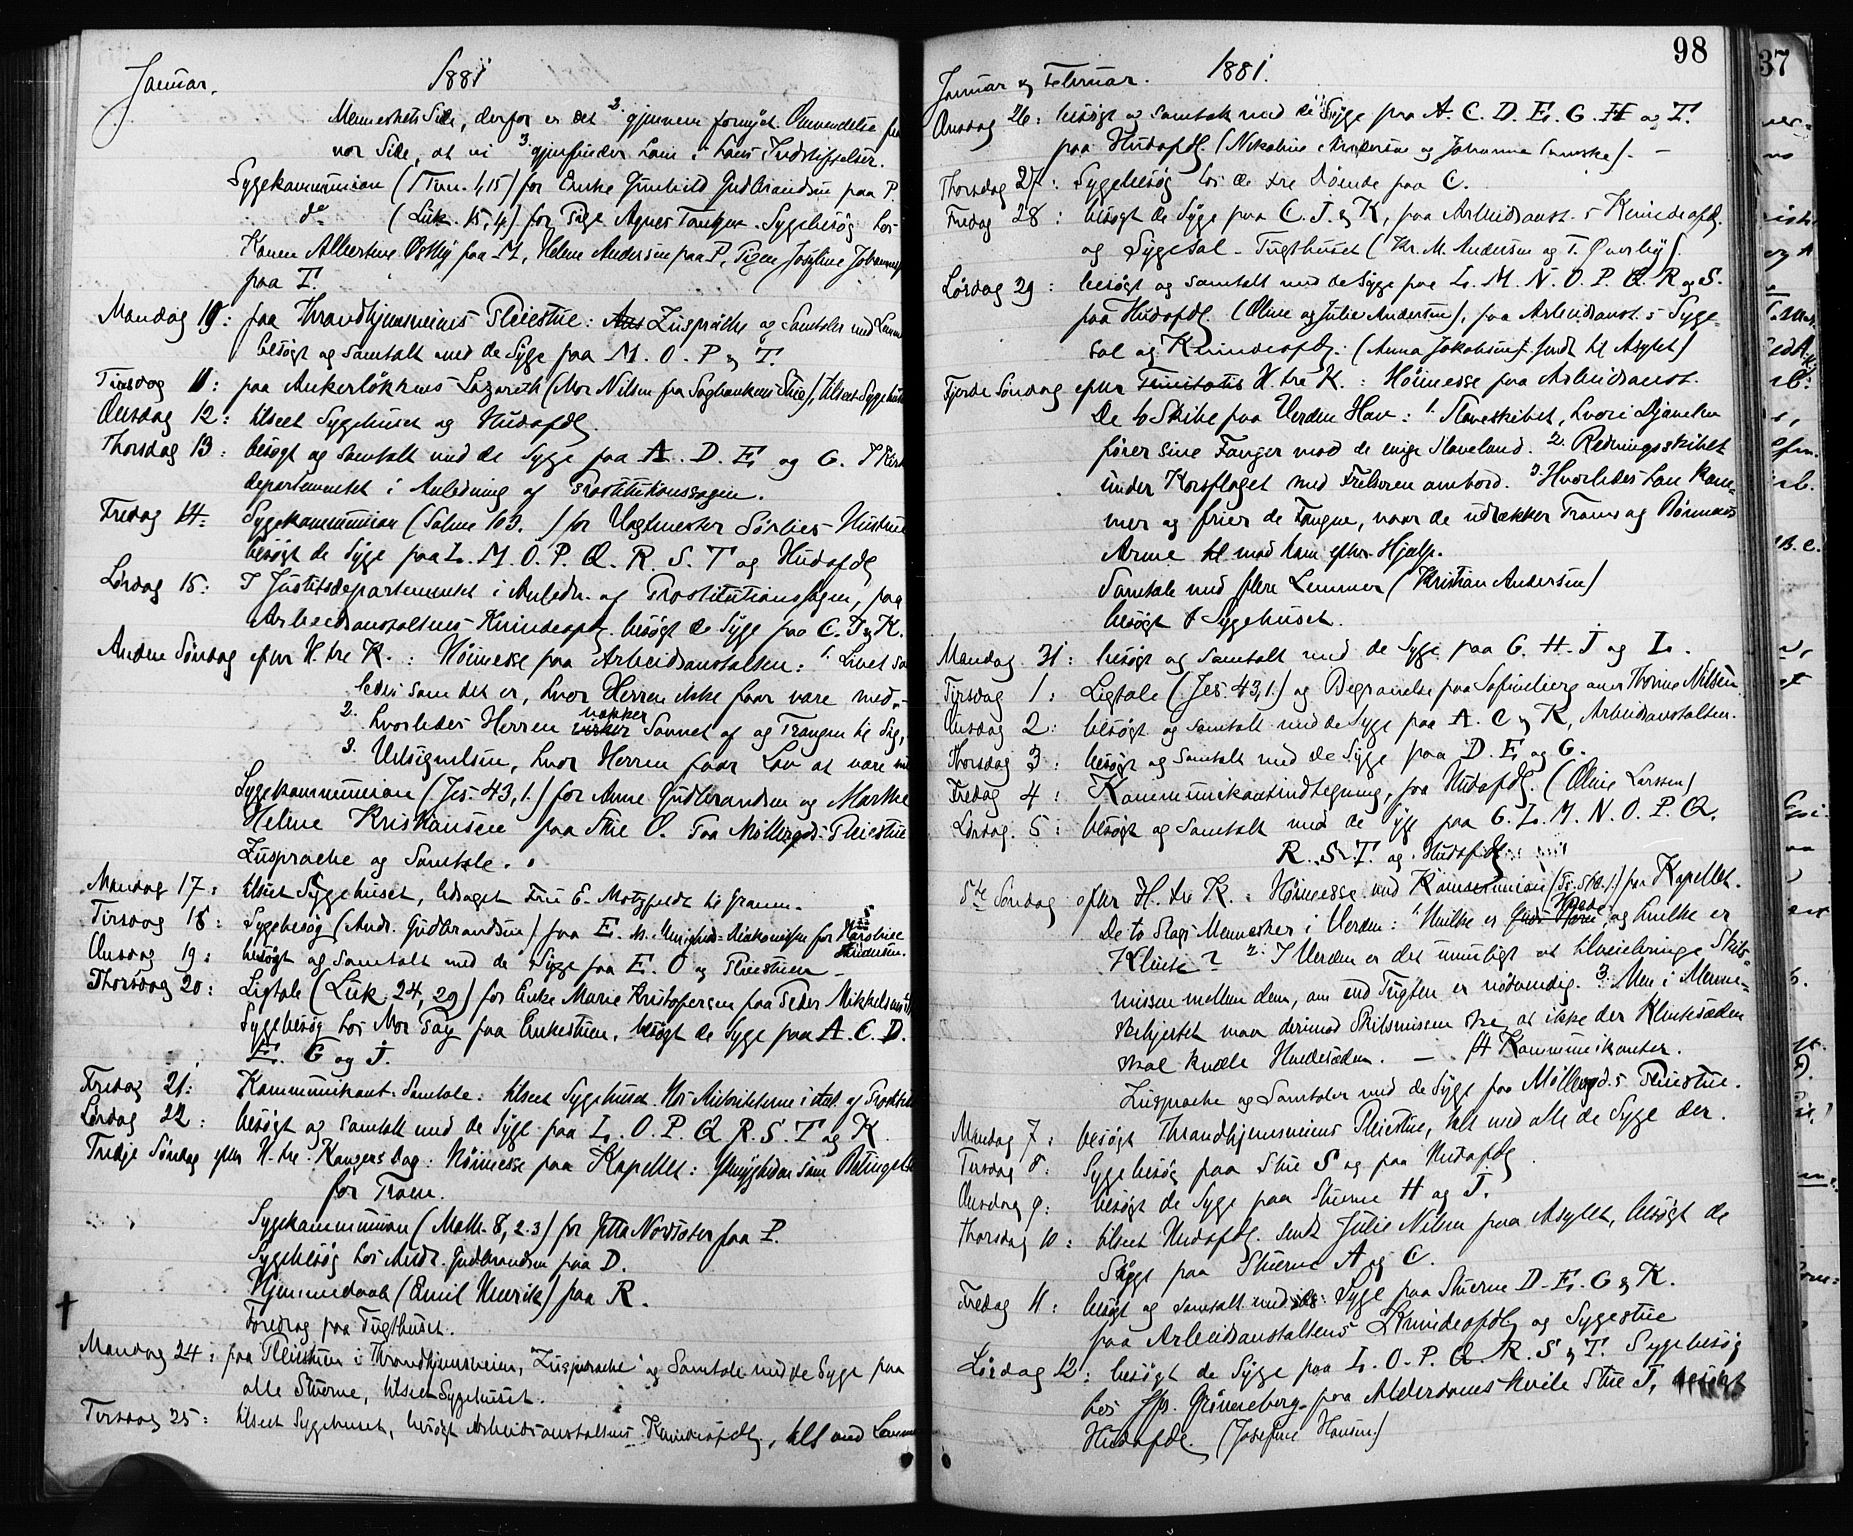 Januar. 1881
Menneskets Side, derfor er det 2. gjennem fornyet Omvendelse fra
vor Side, at vi 3. gjenfinder ham i hans Indstiftelser.
Sygekommunion (1 Tim. 1,15) for Enke Gunhild Gudbrandsen paa P.
do (Luk. 15,4) for Pige Agnes Sygebesøg hos
Konen Albertine paa M, Helene Andersen paa P, Pigen Josefine
paa T.
Mandag 10: paa Throndhjemsveiens Pleiestue: Zusprache og Samtaler med
besøgt og samtalt med de Syge paa M. O. P og T.
Tirsdag 11: paa Ankerløkkens Lazareth (Mor Nilsen fra Sagbankens Stue), tilseet
Onsdag 12: tilseet Sygehuset og Hudafdlg.
Thorsdag 13: besøgt og samtalt med de Syge paa A. D. E. og G. I
departementet i Anledning af Prostitutionssagen.
Fredag 14. Sygekommunion (Salme 103. ) for Vagtmester Sørlies Hustru
besøgt de Syge paa L. M. O. P. Q. R. S. T og Hudafdlg
Lørdag 15: I Justitsdepartementet i Anledn. af Prostitutionssagen, paa
Arbeidsanstaltens Kvindeafdlg. besøgt de Syge paa C. J og K.
Anden Søndag efter H. tre K.: Høimesse paa Arbeidsanstalten: 1. Livet saa
ledes som det er, hvor Herren ikke faar være med.-
2. hvorledes Herren vækker Savnet af og Trangen til Sig,
3. Velsignelsen, hvor Herren faar Lov at være
Sygekommunion (Jes. 43,1.) for Anne Gudbrandsen og Marthe
Helene Kristiansen paa Stue O. Paa Møllergds. Pleiestue
Zusprache og Samtale.
Mandag 17: tilseet Sygehuset, ledsaget Fru E. Motzfeldt til Graven.
Tirsdag 18: Sygebesøg (Andr. Gudbrandsen) paa E.
Onsdag 19: besøgt og samtalt med de Syge paa E. O og Pleiestuen
Thorsdag 20: Ligtale (Luk. 24, 29) for Enke Marie Kristofersen paa Peder
Sygebesøg hos Mor Fay paa Enkestuen, besøgt de Syge paa A. C. D.
E. G og J.
Fredag 21: Kommunikant-Samtale: tilseet Sygehuset.
Lørdag 22: besøgt og samtalt med de Syge paa L. O. P. Q R. S. T og K
Tredje Søndag efter H. tre Kongers Dag: Høimesse paa Kapellet: Ydmygheden som
for Troen.
Sygekommunion (Math. 8, 2.3) for paa P.
Sygebesøg hos Andr. Gudbrandsen paa D.
Hjemmedaab (Emil Henrik) paa R.
Foredrag paa Tugthuset.
Mandag 24: paa Pleiestuen i Throndhjemsveien, "Zusprache" og Samtale med de Syge paa
alle Stuerne, tilseet Sygehuset.
Tirsdag 25: tilseet Sygehuset, besøgt Arbeidsanstaltens Kvindeafdlg, talt med
98
37
Januar og Februar. 1881.
Onsdag 26: besøgt og samtalt med de Syge paa A. C. D. E. G. H og T.
paa Hudafdlg. (Nikoline Andersen og Johanne
Thorsdag 27: Sygebesøg hos de tre Døende paa C.
Fredag 28: besøgt de Syge paa C. J. og K, paa Arbeidsanst.s Kvindeafdlg.
og Sygesal - Tugthuset (Kr. M. Andersen og T. Øverby).
Lørdag 29: besøgt og samtalt med de Syge paa L. M. N. O. P. Q. R og S.
paa Hudafdlg. (Oline og Julie Andersen), paa Arbeidsanst.s Syge-
sal og Kvindeafdlg: (Anna Jakobsen sendt til Asylet)
Fjerde Søndag efter Trinitatis H. tre K.: Høimesse paa Arbeidsanst.
De to Skibe paa Verdens Hav: 1. Slaveskibet, hvori Djævelen
fører sine Fanger mod de evige Slaveland. 2. Redningsskibet
under Korsflaget med Frelseren ombord. 3. Hvorledes han kom-
mer og frier de Fangne, naar de udrækker Troens og Bønnens
Arme mod ham efter Hjælp.
Samtale med flere Lemmer (Kristian Andersen)
besøgt Sygehuset.
Mandag 31: besøgt og samtalt med de Syge paa G. H. J og L.
Tirsdag 1: Ligtale (Jes. 43,1.) og Begravelse paa Sofienberg over Thorine Nilsen.
Onsdag 2: besøgt og samtalt med de Syge paa A. C og K, Arbeidsanstalten.
Thorsdag 3: besøgt og samtalt med de Syge paa D. E. og G.
Fredag 4: Kommunikantindtegning, paa Hudafdlg. (Oline Larsen)
Lørdag. 5: besøgt og samtalt med de Syge paa G. L. M. N. O. P. Q.
R. S. T. og Hudafdlg
5te Søndag efter H. tre K.: Høimesse med Kommunion paa Kapellet.
De to Slags Mennesker i Verden: 1. Hvilke er Hvede og hvilke er
Klinte? 2. I Verden er det umuligt at tilveiebringe Skils-
missen mellem dem, om end Tugten er nødvendig. 3. Men i Menne-
skehjertet maa derimod Skilsmissen ske, at ikke der Klintesæden
skal kvæle Hvedesæden. — 14 Kommunikanter.
Zusprache og Samtaler med de Syge paa Møllergd.s Pleiestue.
Mandag 7: besøgt Throndhjemsveiens Pleiestue, talt med alle de Syge der.
Tirsdag 8: Sygebesøg paa Stue S og paa Hudafdlg.
Onsdag 9: besøgt de Syge paa Stuerne H og J.
Thorsdag 10: tilseet Hudafdlg. sendt Julie Nilsen paa Asylet, besøgt de
Syge paa Stuerne A og C.
Fredag 11: besøgt og samtalt med de Syge paa Stuerne D. E. G og K.
paa Arbeidsanstaltens Kvindeafdlg og Sygestue
Lørdag 12: besøgt de Syge paa L. O. P. Q. R. S og T. Sygebesøg
hos Grønneberg paa Alderdoms Hvile Stue T, besøgt
Hudafdlg. (Josefine Hansen.)